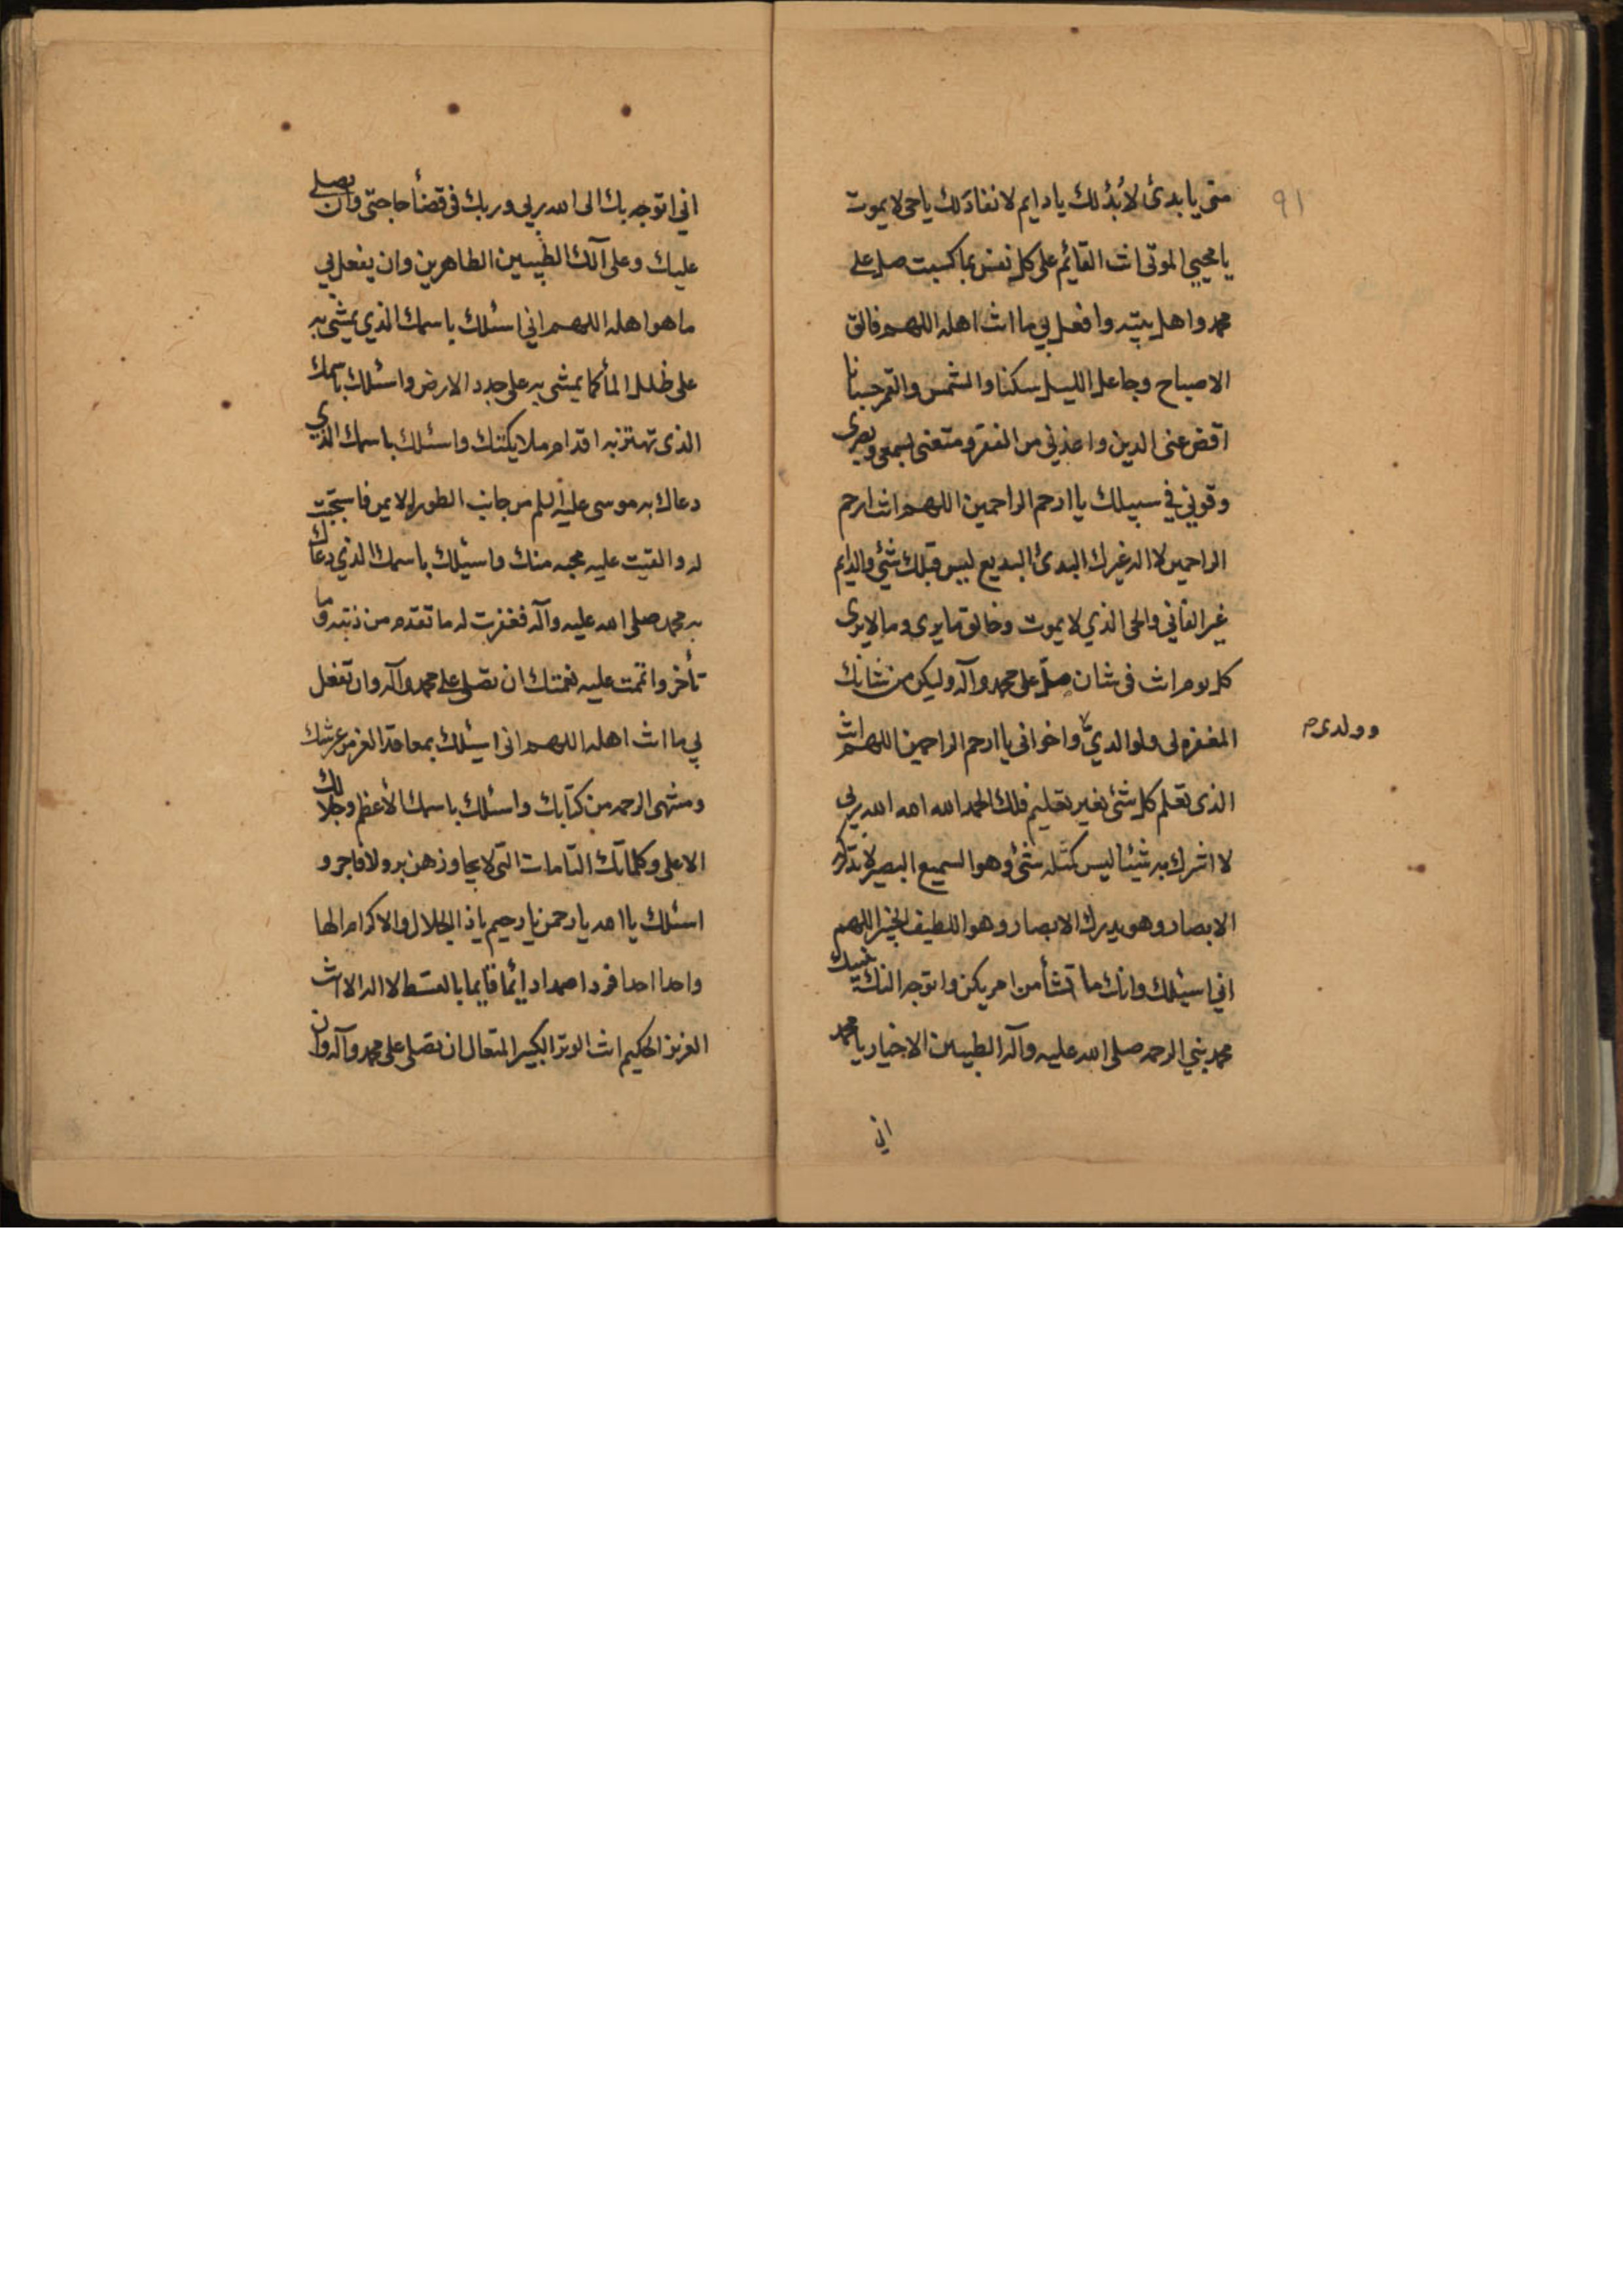 ٩١
مني يا بدئ لا بُدُؤ لك يا دايم لا نفاد لك يا حي لا يموت
يا محيي الموتى انت القائم على كل نفس بما كسبت صل على
محمد واهل بيته وافعل بي ما انت اهله اللهم فالق
الاصباح وجاعل الليل سكنا والشمس والقمر حسبانا
اقض عني الدين واعذني من الفقر ومتعنى بسمعى وبصرى
وقوني في سبيلك يا ارحم الراحمين اللهم انت ارحم
الراحمين لا اله غيرك البدئ البديع ليس قبلك شئ والدايم
غير الفاني والحى الذي لا يموت وخالق ما يرى وما لا يرى
كل يوم انت فى شان صلّ على محمد وآله وليكن من شانك
المغفره لى ولوالديّ واخوانى يا ارحم الراحمين اللهم انت
وولدى م
الذى تعلم كل شئ بغير تعليم فلك الحمد الله الله الله ربي
لا اشرك به شيئا ليس كمثله شئ وهو السميع البصير لا تدركه
الابصار وهو يدرك الابصار وهو اللطيف الخبير اللهم
اني اسئلك وانك ما تشأ من امر يكن واتوجه اليك بنبيك
محمد نبي الرحمه صلى الله عليه وآله الطيبين الاخيار يا محمد
اني
اني اتوجه بك الى الله ربي وربك فى قضأ حاجتى وان يصلي
عليك وعلى آلك الطيبين الطاهرين وان يفعل بي
ما هو اهله اللهم اني اسئلك باسمك الذي يمشى به
على ظلل المأ كما يمشى به على جدد الارض واسئلك باسمك
الذى تهتز به اقدام ملايكتك واسئلك باسمك الذي
دعاك به موسى عليه السلم من جانب الطور الايمن فاستجبت
له والقيت عليه محبه منك واسئلك باسمك الذي دعاك
به محمد صلى الله عليه وآله فغفرت له ما تقدم من ذنبه وما
تأخر واتممت عليه نعمتك ان تصلى على محمد وآله وان تفعل
بي ما انت اهله اللهم انى اسئلك بمعاقد العز من عرشك
ومنتهى الرحمه من كتابك واسئلك باسمك الأعظم وجلالك
الاعلى وكلماتك التامات التى لا يجاوزهن بر ولا فاجر و
اسئلك يا الله يا رحمن يا رحيم يا ذا الجلال والاكرام الها
واحدا احدا فردا صمدا دائما قايما بالقسط لا اله الا انت
العزيز الحكيم انت الوتر الكبير المتعال ان تصلى على محمد وآله وان